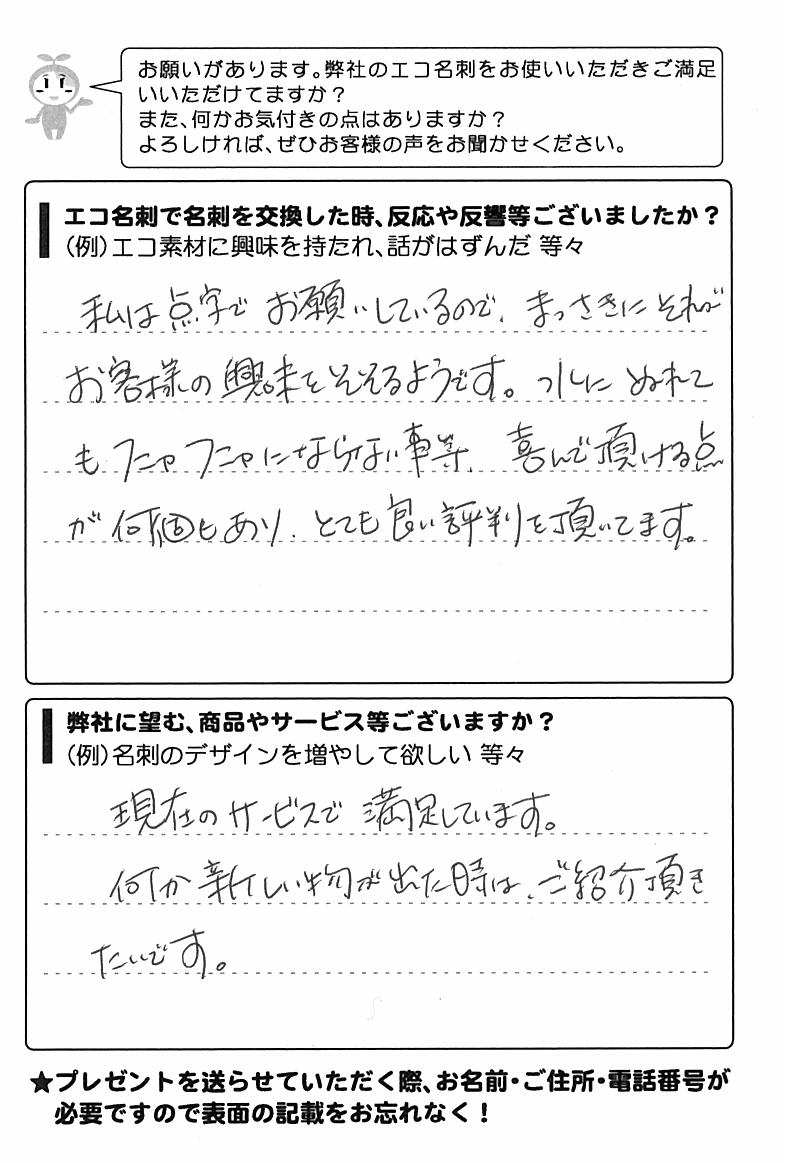 お願いがあります。弊社のエコ名刺をお使いいただきご満足
いいただけてますか？
また、何かお気付きの点はありますか？
よろしければ、ぜひお客様の声をお聞かせください。
エコ名刺で名刺を交換した時、反応や反響等ございましたか？
（例）エコ素材に興味を持たれ、話がはずんだ 等々
私は点字で お願いしているので、まっさきに それが
お客様の興味をそそるようです。水に ぬれて
も フニャフニャにならない事等、喜んで頂ける点
が 何個もあり、とても良い評判を頂いてます。
弊社に望む、商品やサービス等ございますか？
（例）名刺のデザインを増やして欲しい 等々
現在のサービスで 満足しています。
何か新しい物が出た時は、ご紹介頂き
たいです。
★プレゼントを送らせていただく際、お名前・ご住所・電話番号が
必要ですので表面の記載をお忘れなく！